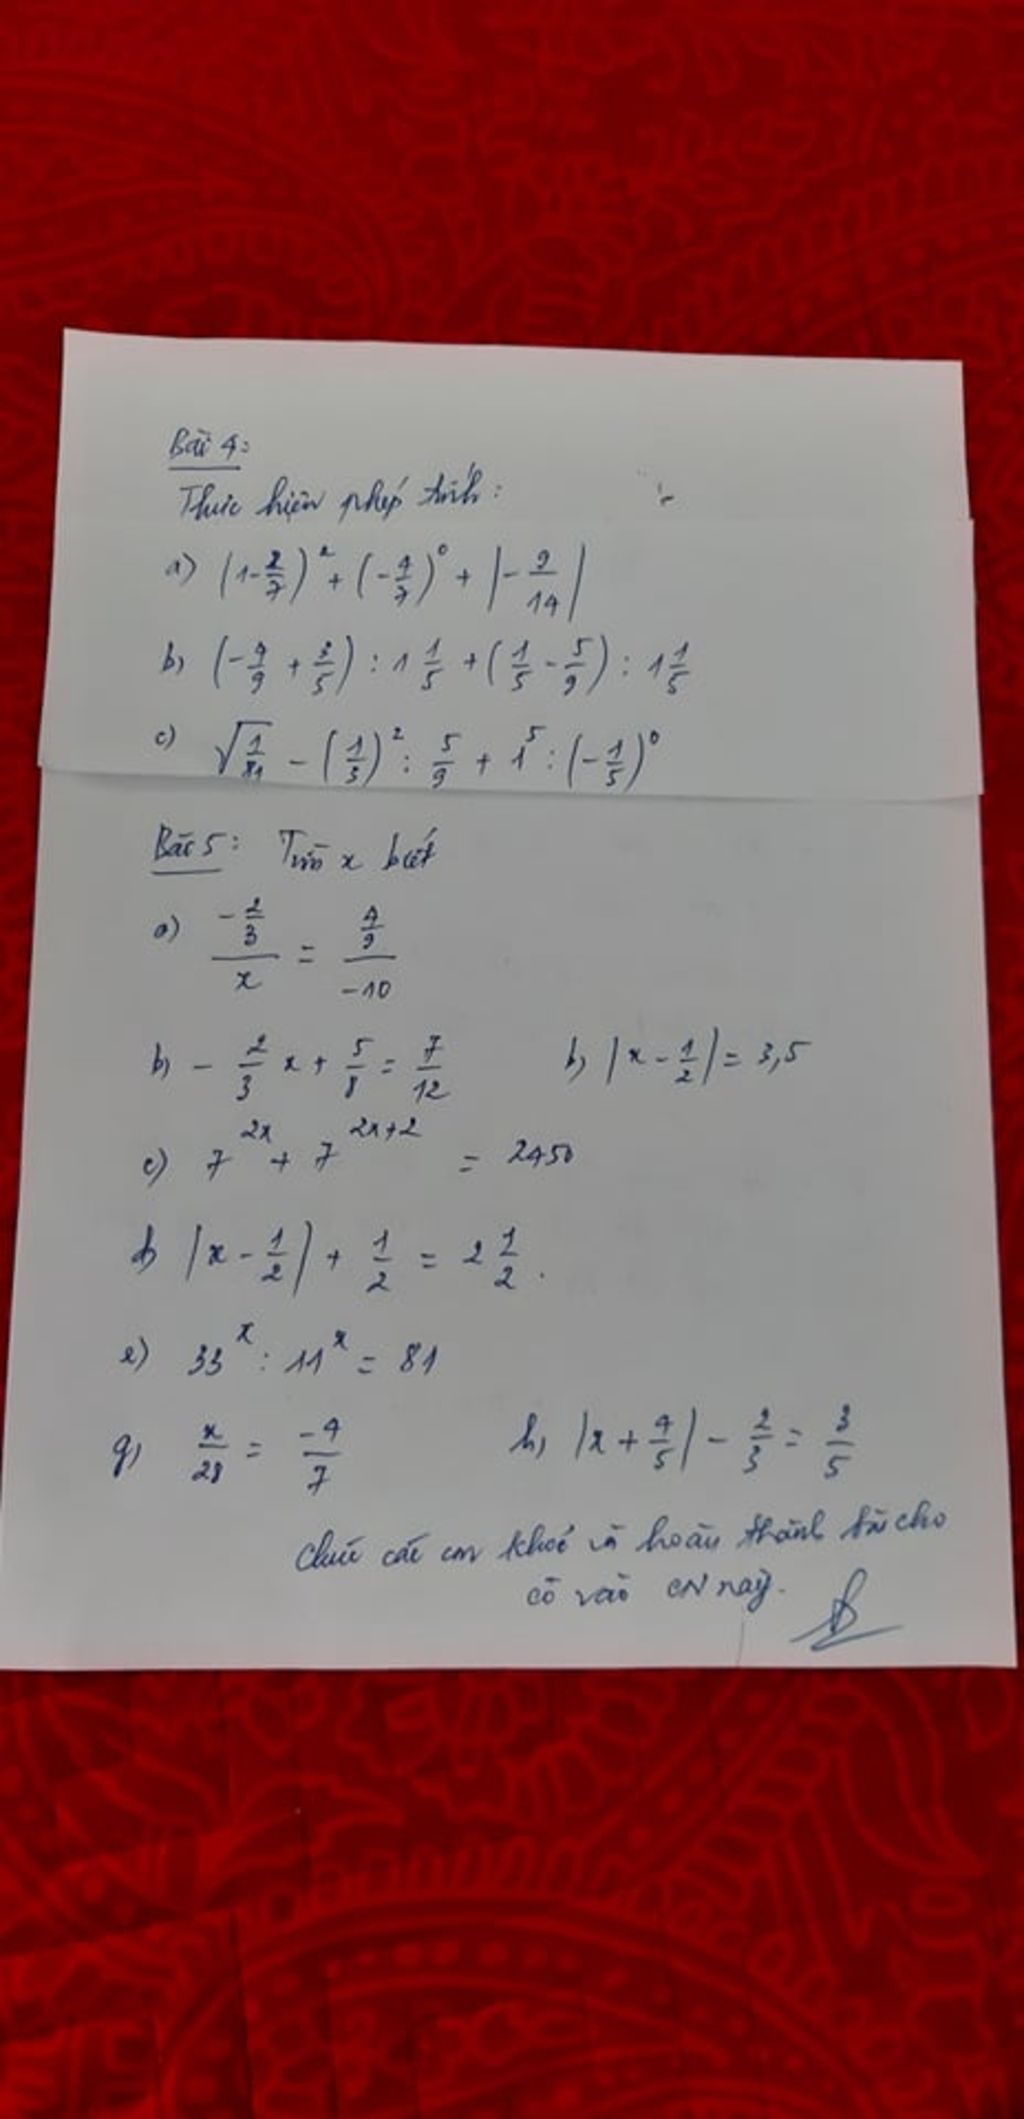 Bài 4:
Thực hiện phép tính:
a) (1-2/7)² + (-4/7)⁰ + |-9/14|
b) (-4/9 + 3/5) : 1 1/5 + (1/5 - 5/9) : 1 1/5
c) √(1/81) - (1/3)² : 5/9 + 1⁵ : (-1/5)⁰
Bài 5: Tìm x biết
a) (-2/3)/x = (4/9)/(-10)
b) - 2/3 x + 5/8 = 7/12 b) |x - 1/2| = 3,5
c) 7^(2x) + 7^(2x+2) = 2450
d) |x - 1/2| + 1/2 = 2 1/2.
e) 33^x : 11^x = 81
g) x/28 = -4/7 h) |x + 4/5| - 2/3 = 3/5
chúc các em khoẻ và hoàn thành bài cho
cô vào CN này.